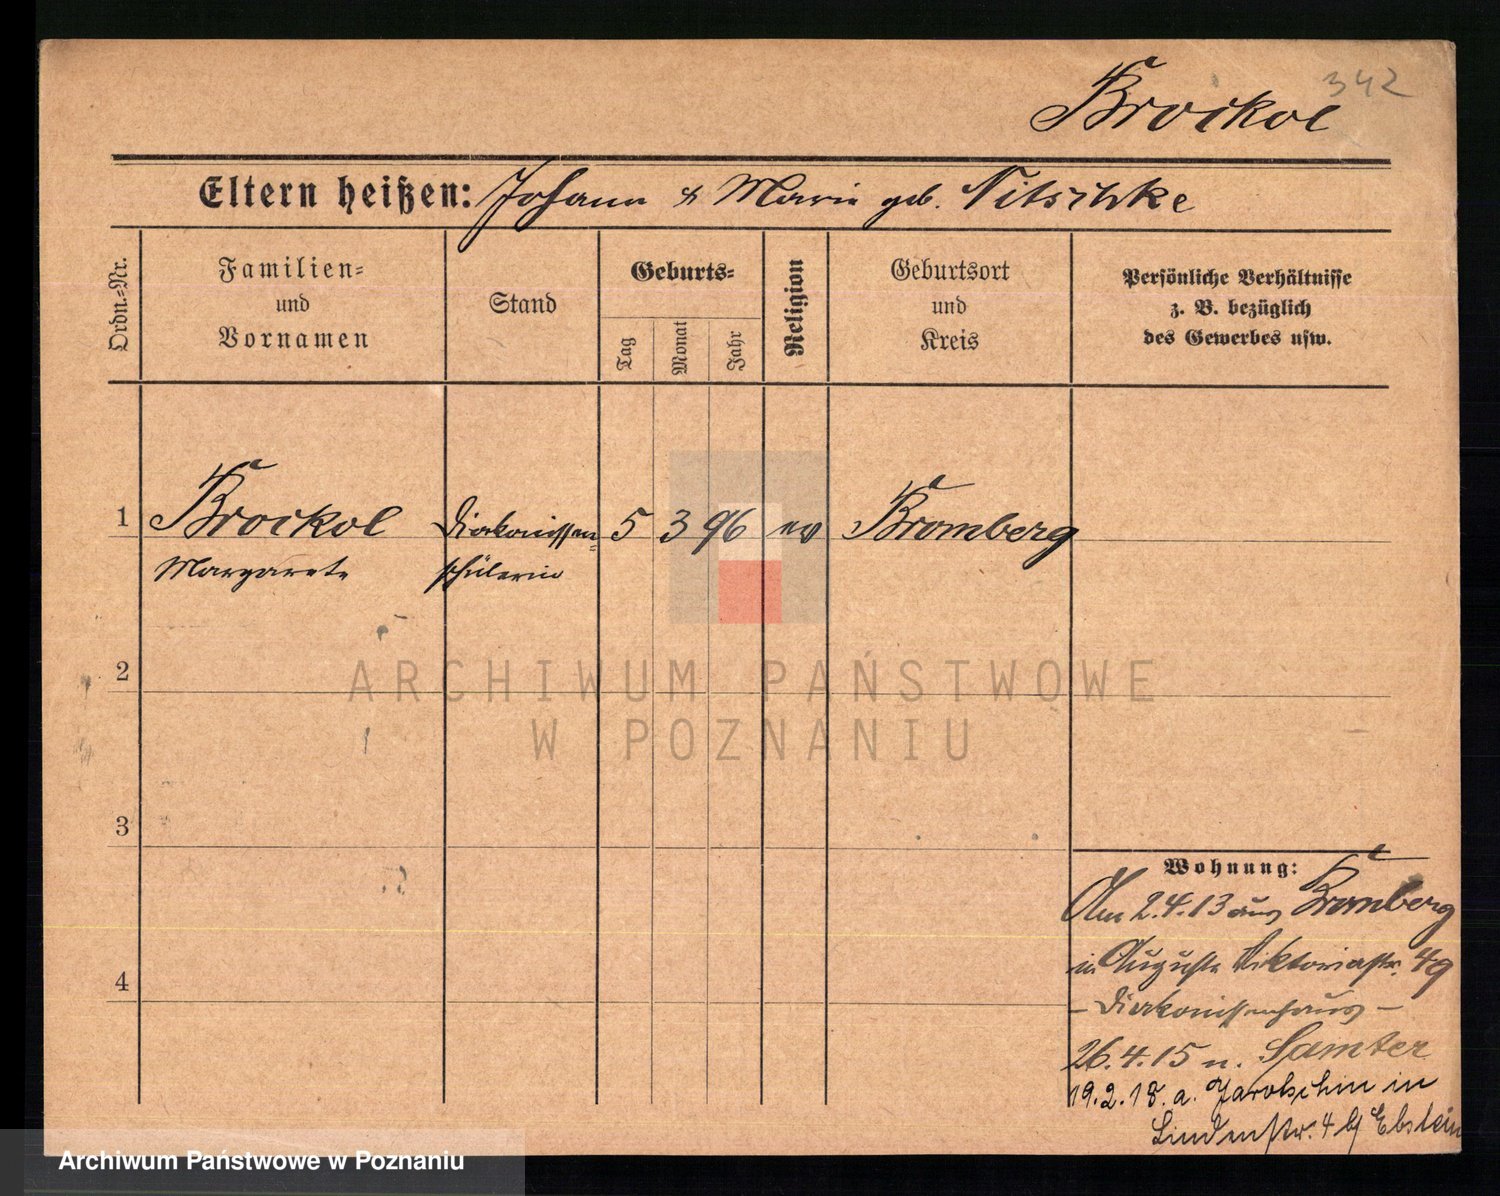 342
Brockol
Eltern heißen: Johann & Marie geb. Nitschke
Ordn.-Nr.
Familien-
und
Vornamen
Stand
Geburts-
Tag
Monat
Jahr
Religion
Geburtsort
und
Kreis
Persönliche Verhältnisse
z. B. bezüglich
des Gewerbes usw.
1 Brockol Diakonissen- 5 3 96 ev Bromberg
Margarete schülerin
2
ARCHIWUM PAŃSTWOWE
W POZNANIU
3
Wohnung:
Am 2.4.13 aus Bromberg
in Auguste Viktoriastr. 49
4
- Diakonissenhaus -
26.4.15 n. Samter
19.2.18. a. Jarotschin in
Lindenstr. 4 b/ Ebstein
Archiwum Państwowe w Poznaniu